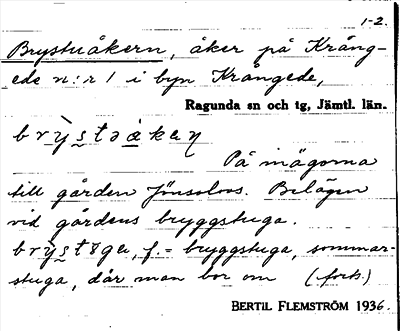 1-2.
Brystuåkern, åker på Kräng-
ede n:r 1 i byn Krångede,
Ragunda sn och tg, Jämtl. län.
På mägorna
till gården Jönsolovs. Belägen
vid gårdens bryggstuga.
f. = bryggstuga, sommar-
stuga, där man bor om (forts.)
BERTIL FLEMSTRÖM 1936.